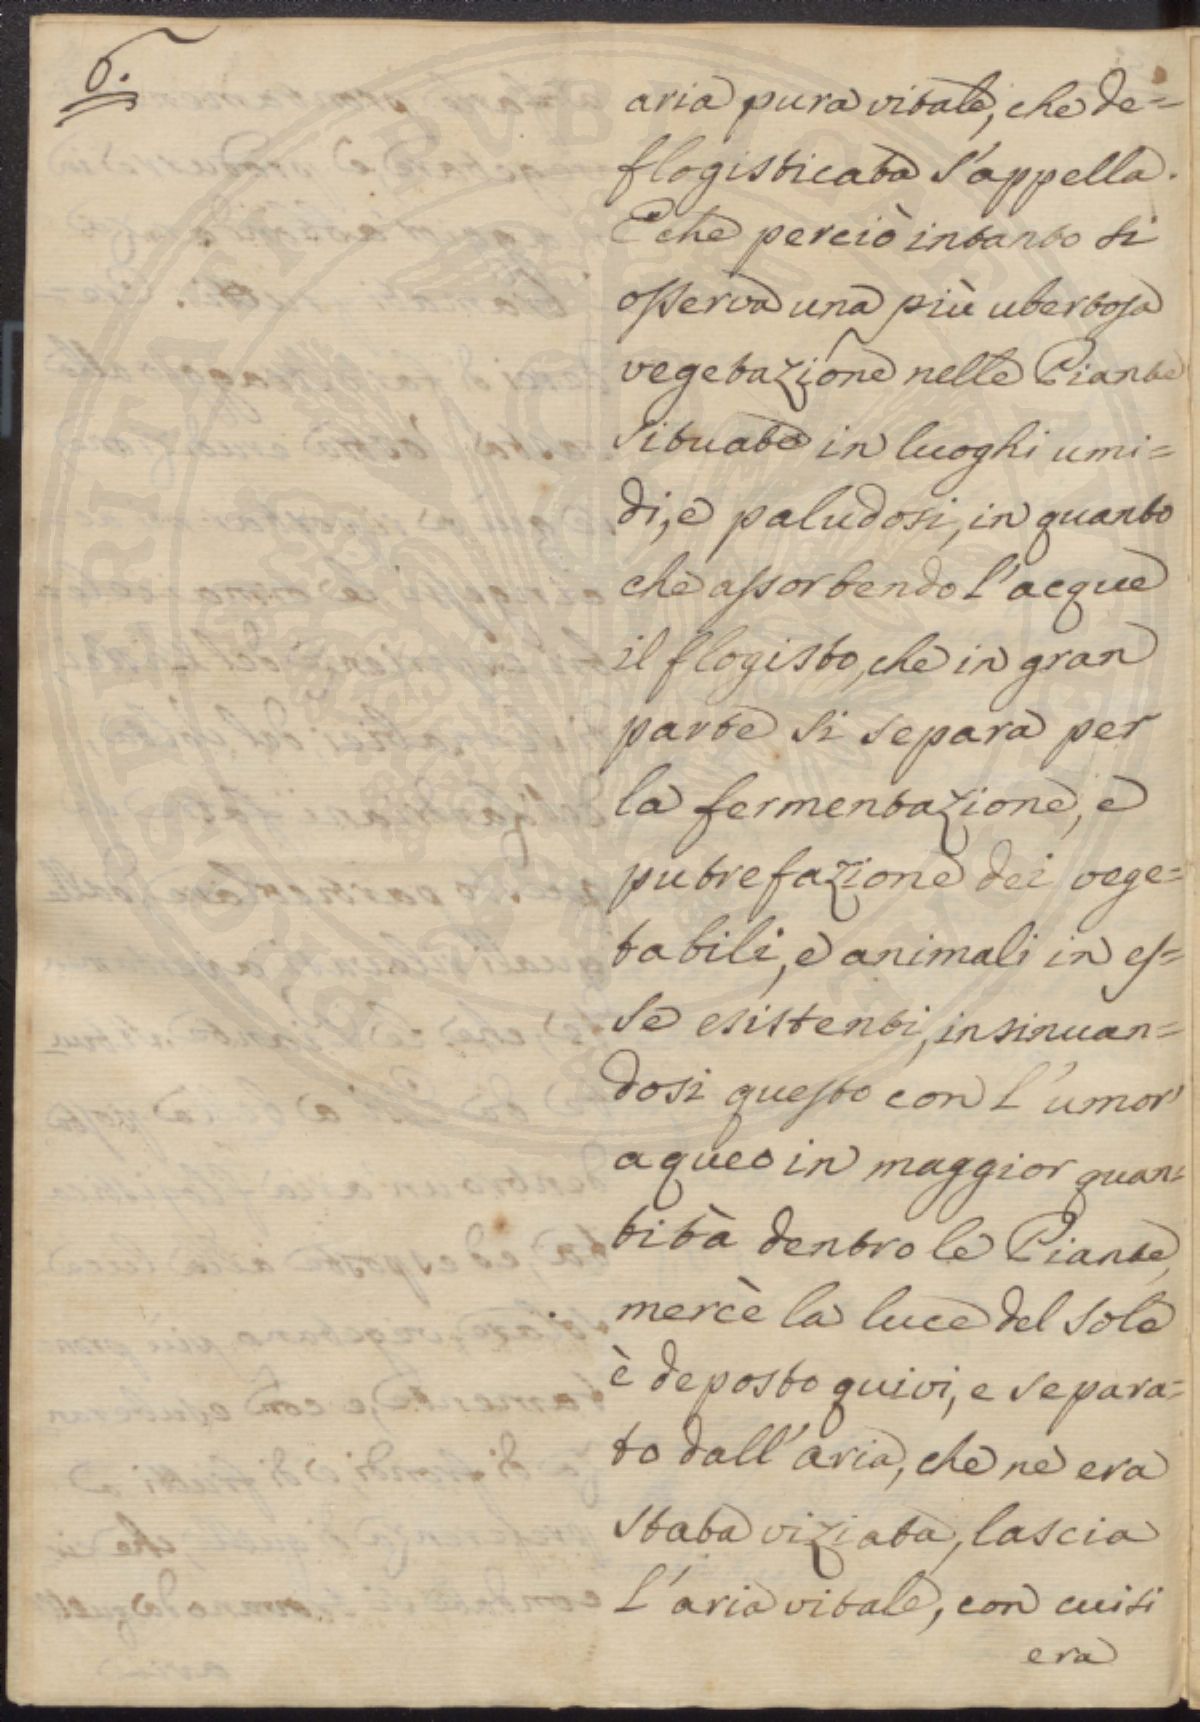 6.
aria pura vitale, che de=
flogisticata s'appella.
E che perciò intanto si
osserva una più ubertosa
vegetazione nelle Piante
situate in luoghi umi=
di, e paludosi, in quanto
che assorbendo l'acque
il flogisto, che in gran
parte si separa per
la fermentazione, e
putrefazione dei vege=
tabili, e animali in es=
se esistenti, insinuan=
dosi questo con l'umor'
aqueo in maggior quan=
tità dentro le Piante,
mercè la luce del sole
è deposto quivi, e separa=
to dall'aria, che ne era
stata viziata, lascia
l'aria vitale, con cui si
era